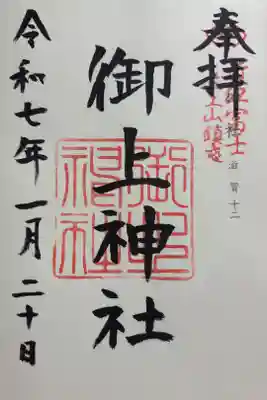 奉拝
近江富士
三上山鎮座
御上神社
御上神社
令和七年一月二十日